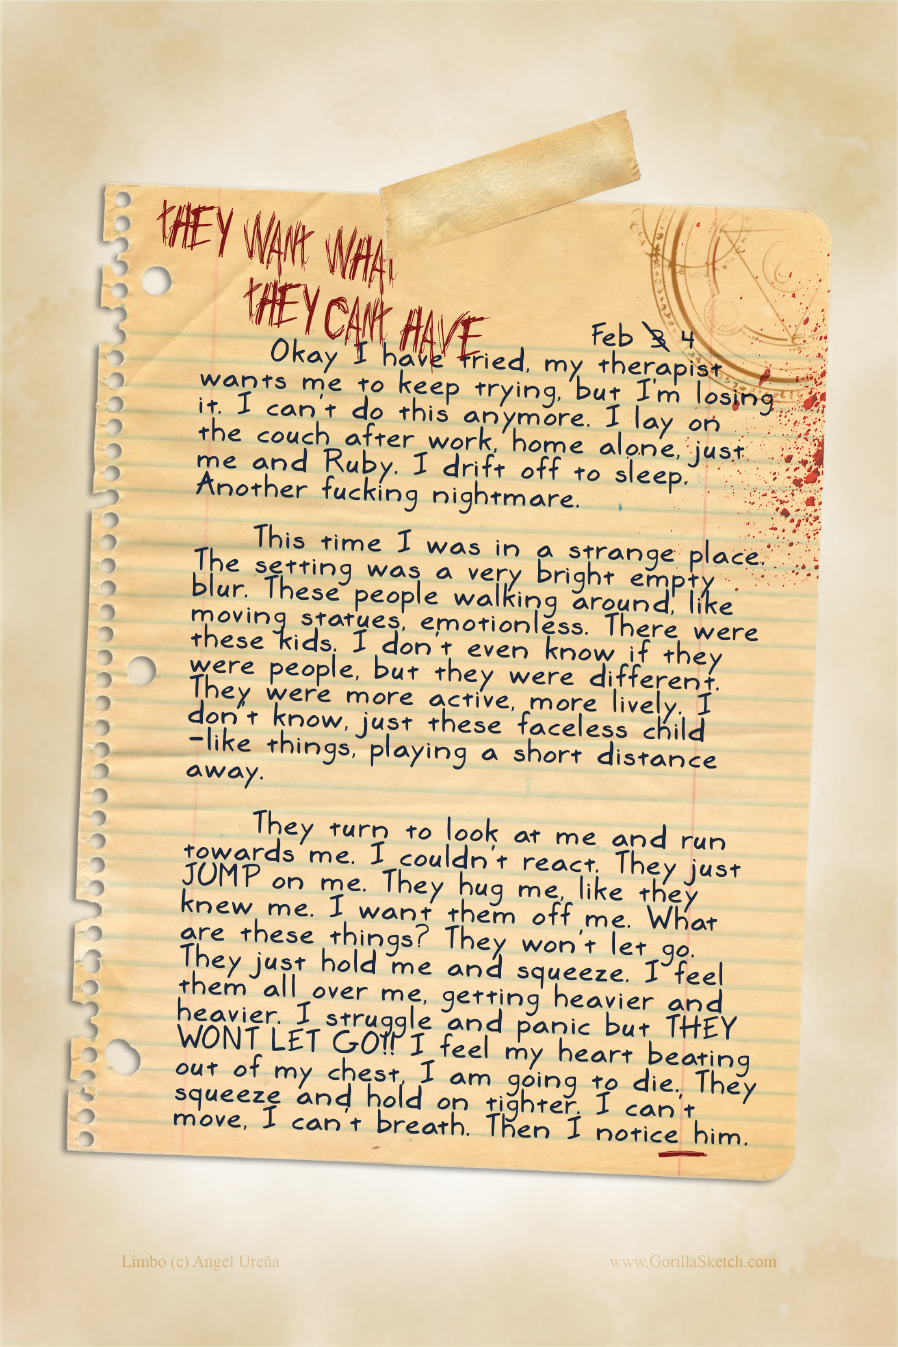 THEY WANT WHAT
THEY CANT HAVE
Feb 3 4
Okay I have tried, my therapist
wants me to keep trying, but I'm losing
it. I can't do this anymore. I lay on
the couch after work, home alone, just
me and Ruby. I drift off to sleep.
Another fucking nightmare.
This time I was in a strange place.
The setting was a very bright empty
blur. These people walking around, like
moving statues, emotionless. There were
these kids. I don't even know if they
were people, but they were different.
They were more active, more lively. I
don't know, just these faceless child
-like things, playing a short distance
away.
They turn to look at me and run
towards me. I couldn't react. They just
JUMP on me. They hug me, like they
knew me. I want them off me. What
are these things? They won't let go.
They just hold me and squeeze. I feel
them all over me, getting heavier and
heavier. I struggle and panic but THEY
WONT LET GO!! I feel my heart beating
out of my chest, I am going to die. They
squeeze and hold on tighter. I can't
move, I can't breath. Then I notice him.
Limbo (c) Angel Ureña
www.GorillaSketch.com